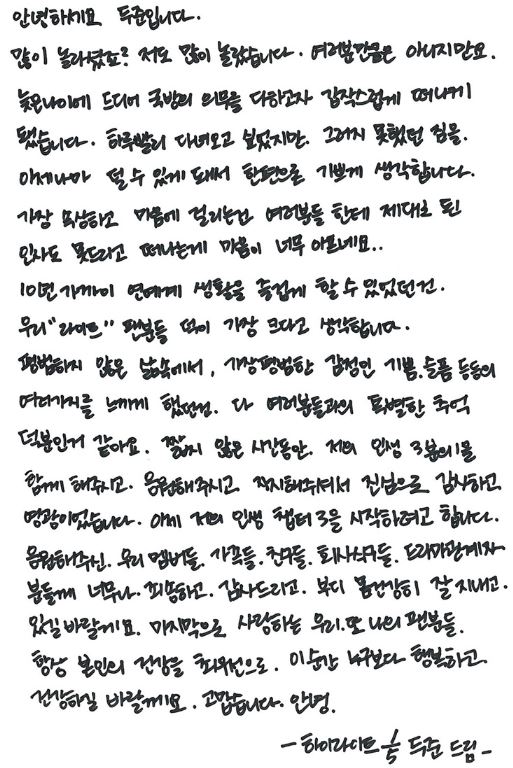 안녕하세요 두준입니다.
많이 놀라셨죠? 저도 많이 놀랐습니다. 여러분만큼은 아니지만요.
늦은나이에 드디어 국방의 의무를 다하고자 갑작스럽게 떠나게
됐습니다. 하루빨리 다녀오고 싶었지만. 그러지 못했던 짐을.
이제나마 덜 수 있게 돼서 한편으로 기쁘게 생각합니다.
가장 속상하고 마음에 걸리는건 여러분들 한테 제대로 된
인사도 못드리고 떠나는게 마음이 너무 아프네요..
10년 가까이 연예계 생활을 즐겁게 할 수 있었던건.
우리 "라이트" 팬분들 덕이 가장 크다고 생각합니다.
평범하지 않은 삶속에서, 가장평범한 감정인 기쁨.슬픔 등등의
여러가지를 느끼게 했던건. 다 여러분들과의 특별한 추억
덕분인거 같아요. 짧지 않은 시간동안. 저의 인생 3분의1을
함께 해주시고. 응원해주시고. 지지해주셔서 진심으로 감사하고
영광이었습니다. 이제 저의 인생 챕터 3을 시작하려고 합니다.
응원해주신. 우리 멤버들. 가족들. 친구들. 회사식구들. 드라마관계자
분들께 너무나. 죄송하고. 감사드리고. 부디 몸건강히 잘 지내고.
있길 바랄게요. 마지막으로 사랑하는 우리.또 나의 팬분들.
항상 본인의 건강을 최우선으로. 이순간 누구보다 행복하고.
건강하길 바랄게요. 고맙습니다. 안녕.
- 하이라이트 윤두준 드림 -